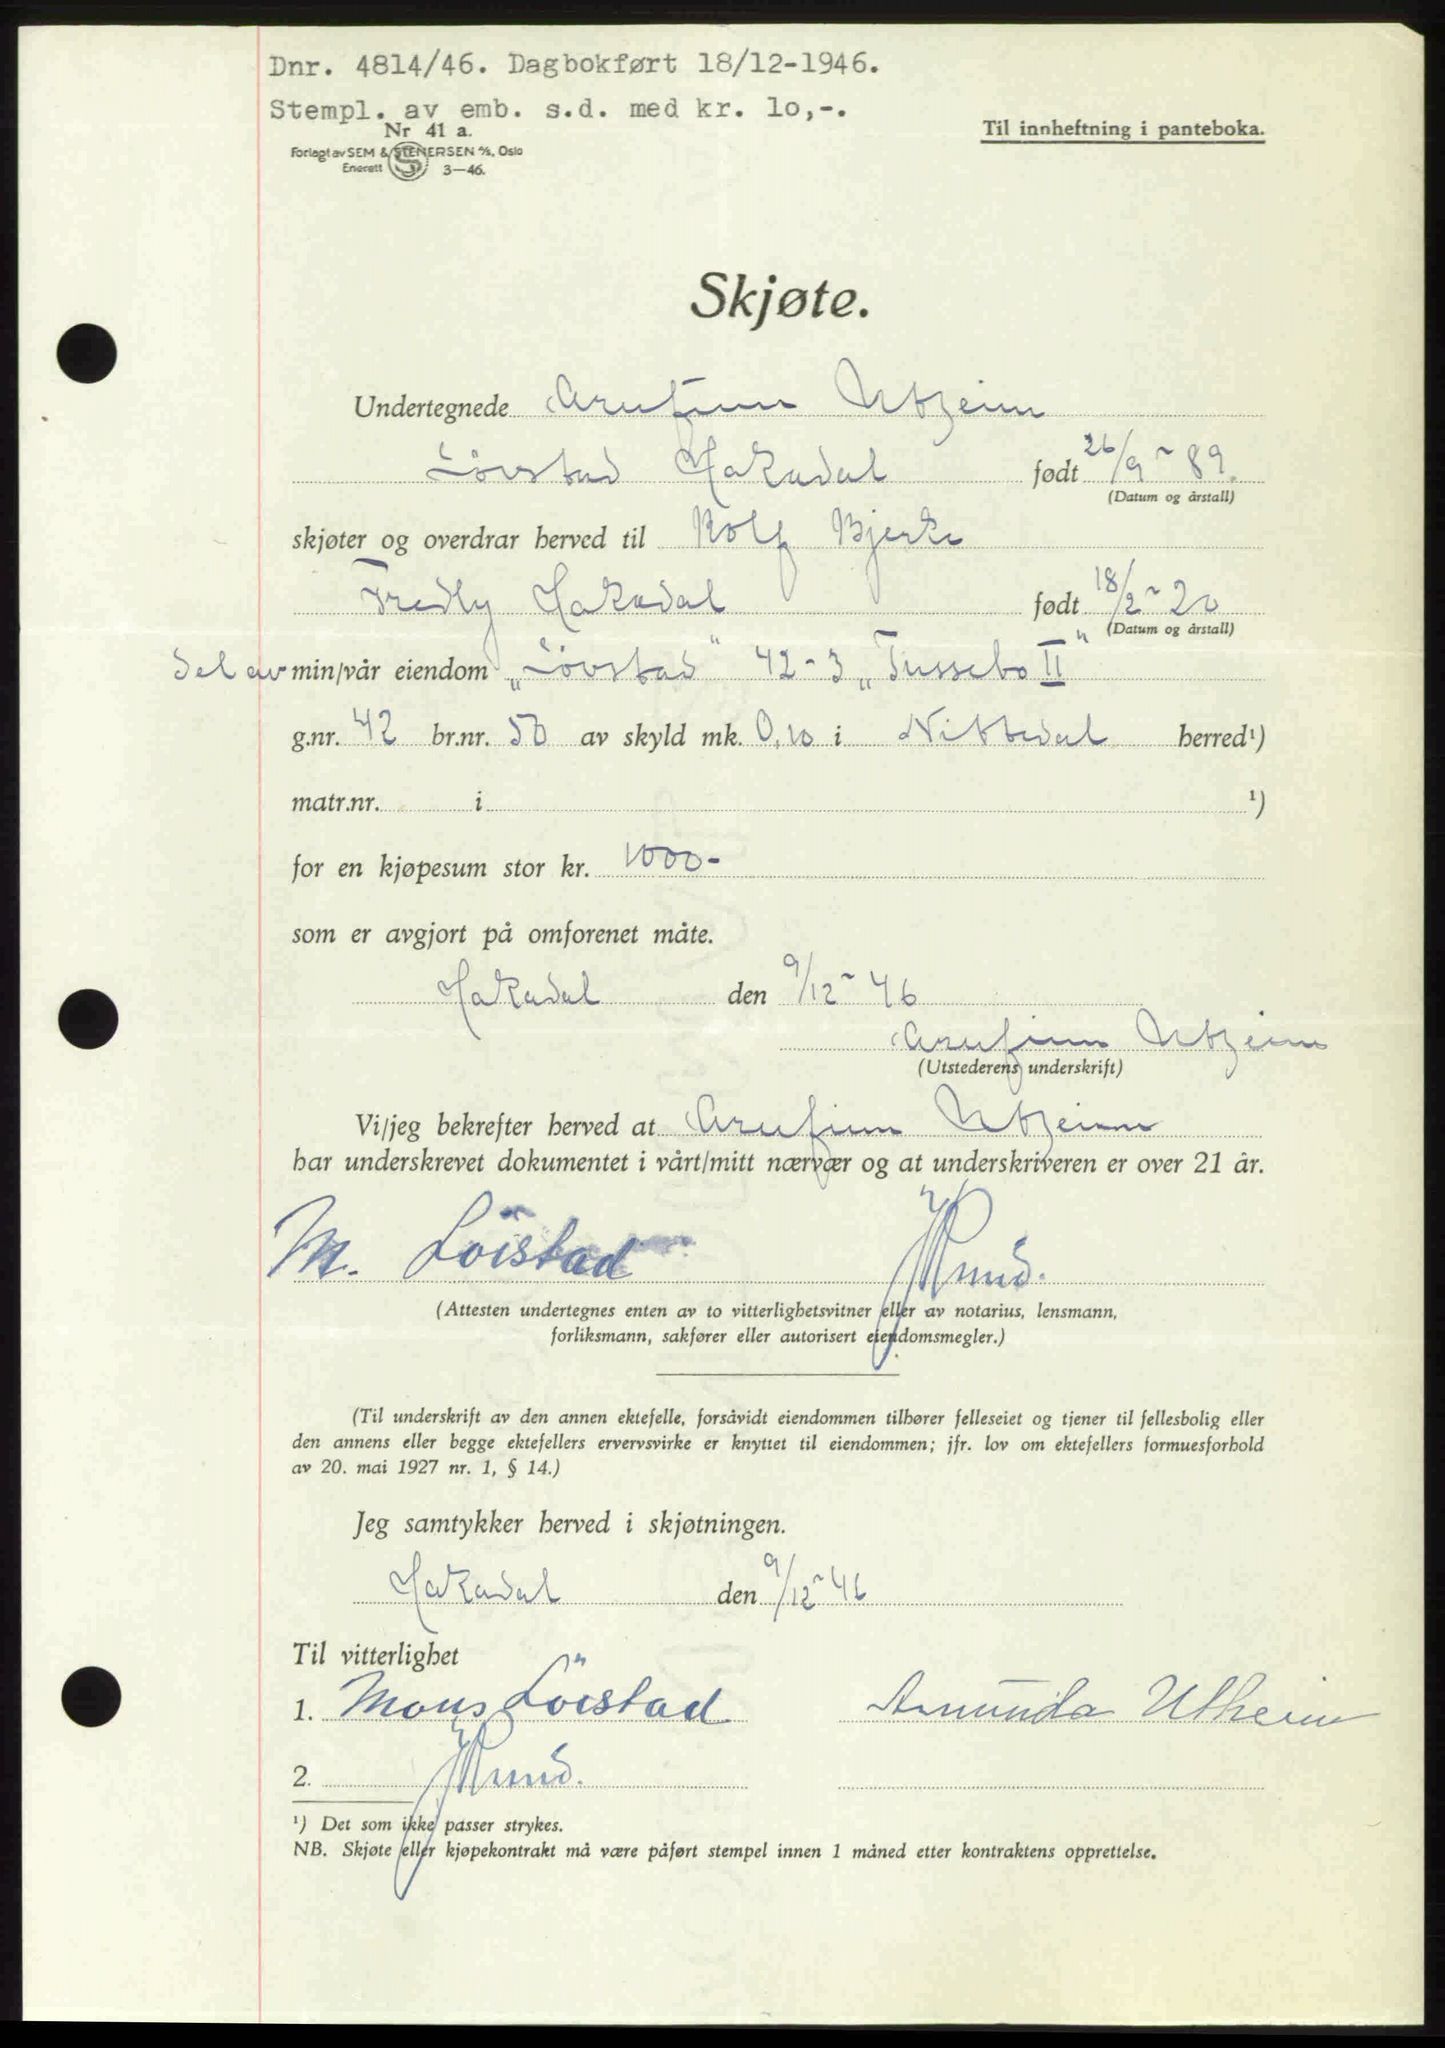 Dnr. 4814/46. Dagbokført 18/12-1946.
Stempl. av emb. s.d. med kr. 10,-.
Nr 41 a.
Forlagt av SEM & STENERSEN A/S, Oslo
Enerett S 3—46.
Til innheftning i panteboka.
Skjøte.
Undertegnede Arnfinn Utheim
Lövstad Hakadal født 26/9 - 89.
(Datum og årstall)
skjøter og overdrar herved til Rolf Bjerke
Fredly Hakadal født 18/2 - 20
(Datum og årstall)
del av min/vår eiendom „Lövstad" 42-3 „Tussebo II"
g.nr. 42 br.nr. 50 av skyld mk. 0,10 i Nittedal herred¹)
matr.nr. i ¹)
for en kjøpesum stor kr. 1000-
som er avgjort på omforenet måte.
Hakadal den 9/12 - 46
Arnfinn Utheim
(Utstederens underskrift)
Vi/jeg bekrefter herved at Arnfinn Utheim
har underskrevet dokumentet i vårt/mitt nærvær og at underskriveren er over 21 år.
M. Löistad
(Attesten undertegnes enten av to vitterlighetsvitner eller av notarius, lensmann,
forliksmann, sakfører eller autorisert eiendomsmegler.)
(Til underskrift av den annen ektefelle, forsåvidt eiendommen tilhører felleseiet og tjener til fellesbolig eller
den annens eller begge ektefellers ervervsvirke er knyttet til eiendommen; jfr. lov om ektefellers formuesforhold
av 20. mai 1927 nr. 1, § 14.)
Jeg samtykker herved i skjøtningen.
Hakadal den 9/12 - 46
Til vitterlighet
1. Mons Löistad Amunda Utheim
2.
¹) Det som ikke passer strykes.
NB. Skjøte eller kjøpekontrakt må være påført stempel innen 1 måned etter kontraktens opprettelse.